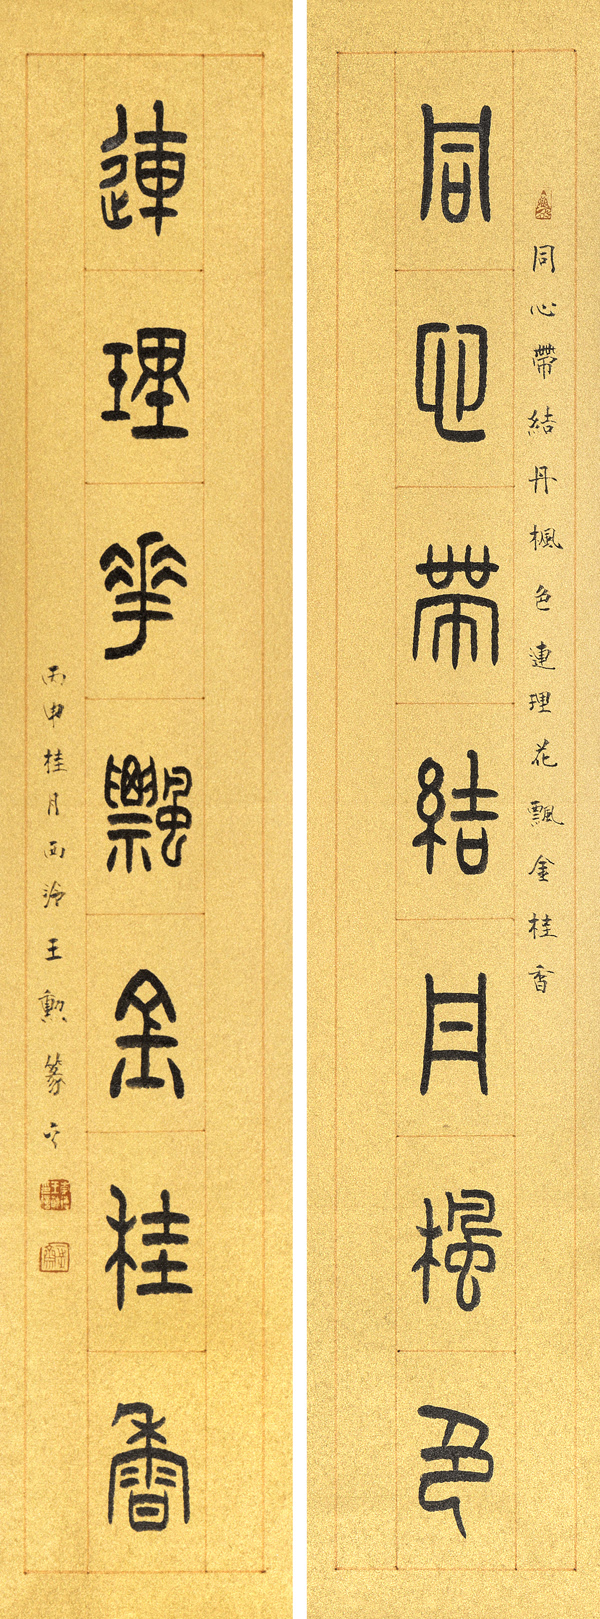 同心帶結丹楓色
同心帶結丹楓色連理花飄金桂香
連理華飄金桂香
丙申桂月西泠王勲篆之